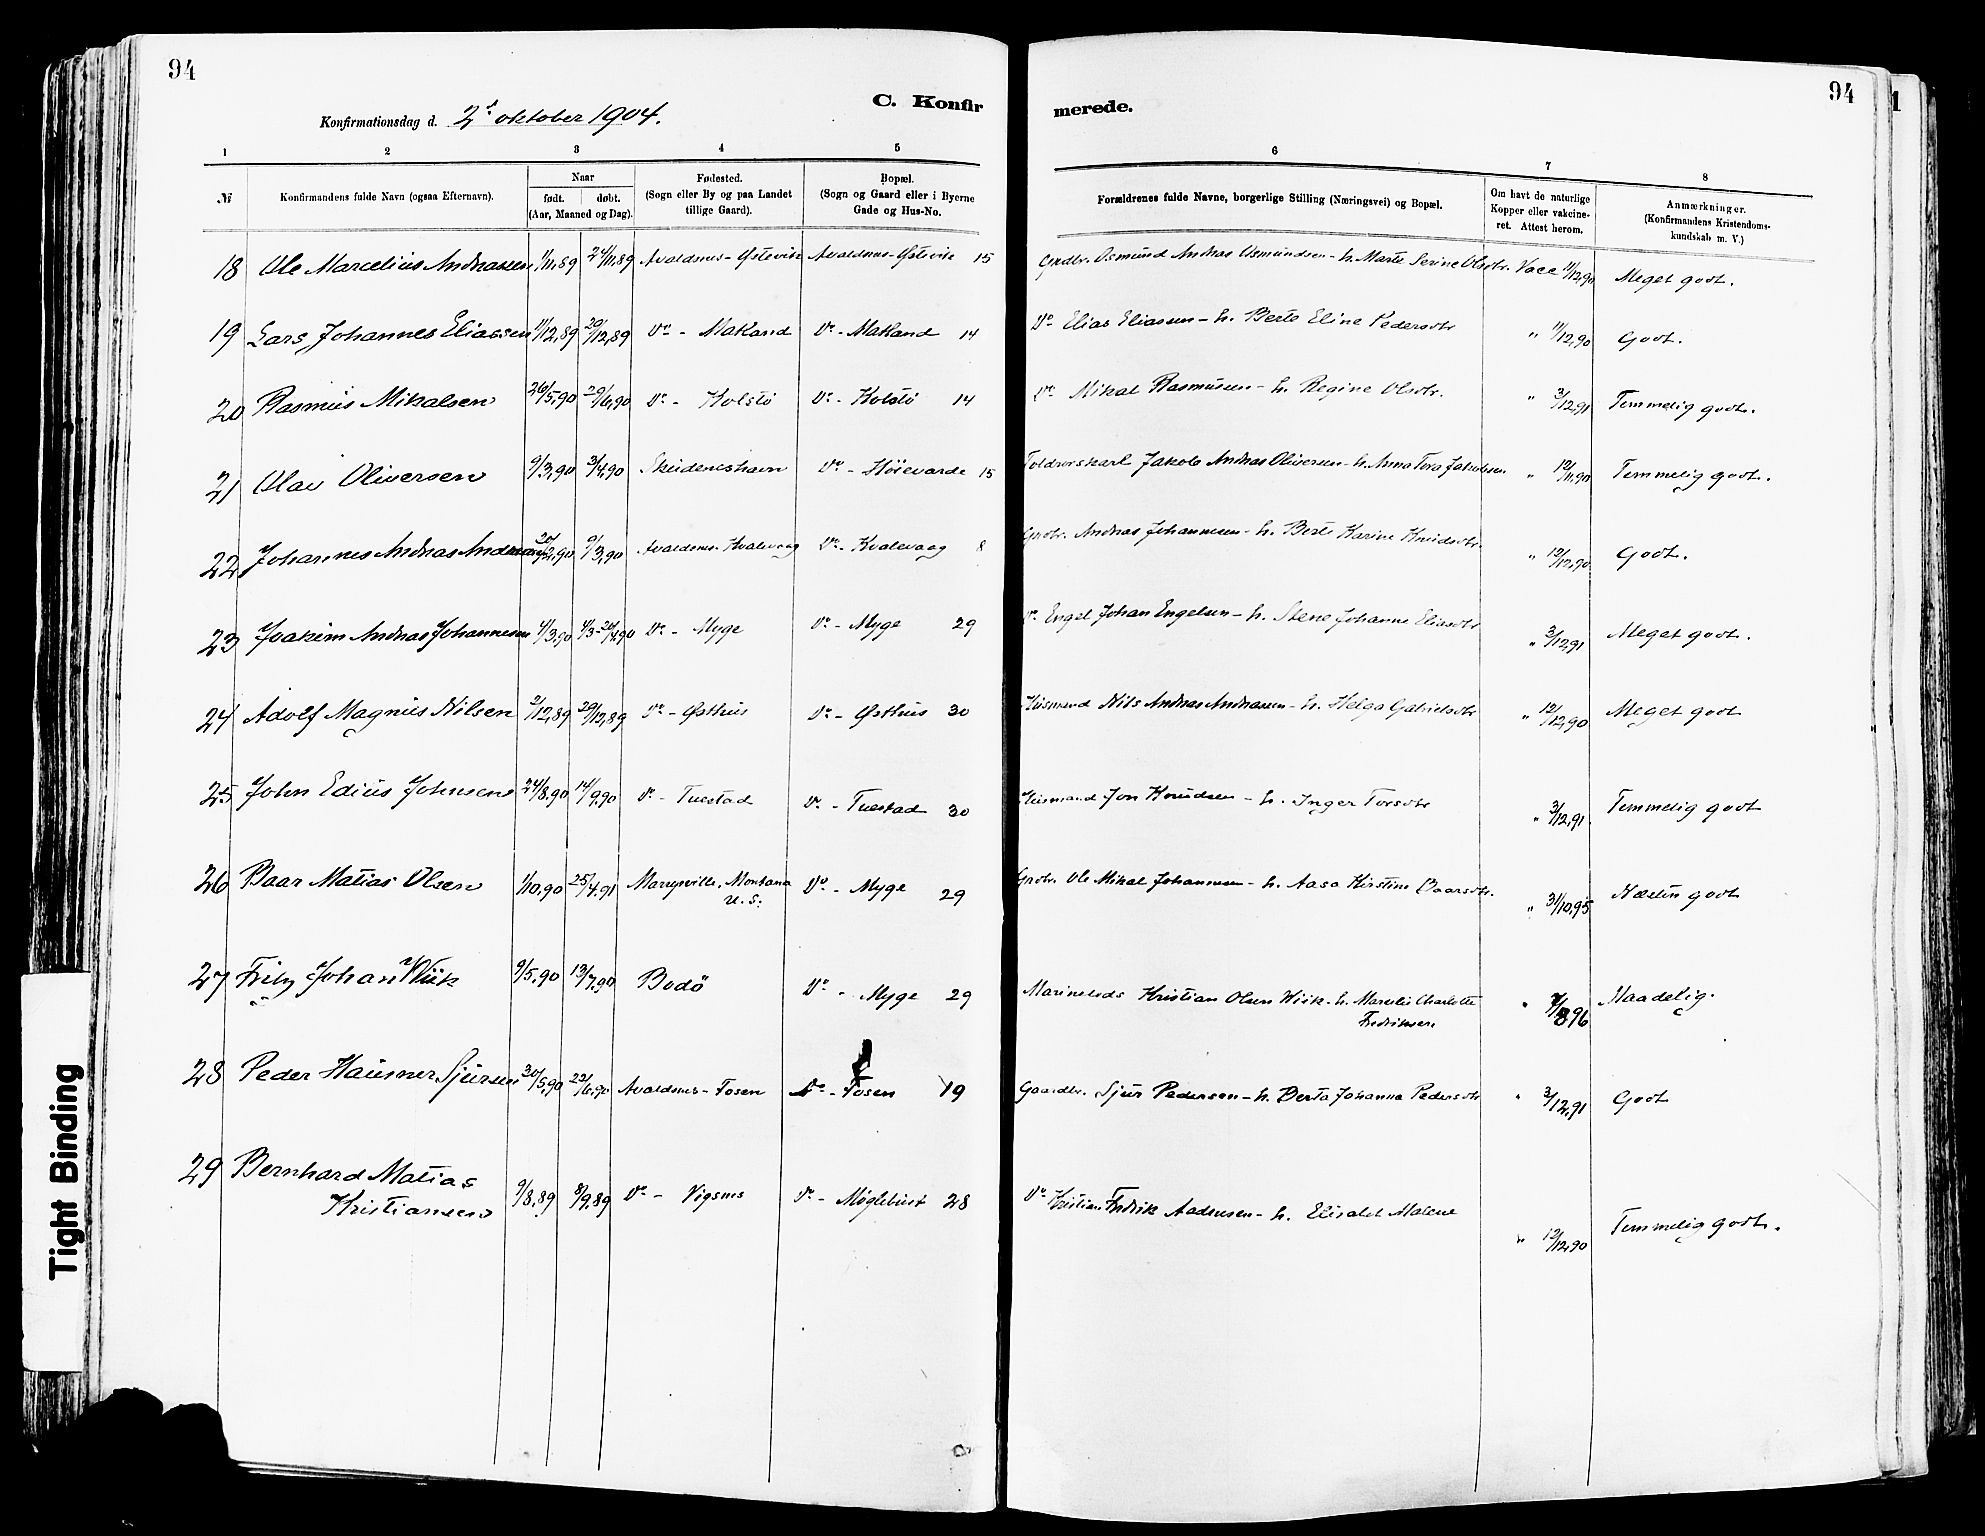 94
C. Konfir
merede.
94
1
Konfirmationsdag d. 2 oktober 1904.
1 2 3 4 5 6 7 8
№ Konfirmandens fulde Navn (ogsaa Efternavn). Naar født. døbt. (Aar, Maaned og Dag). Fødested. (Sogn eller By og paa Landet tillige Gaard). Bopæl. (Sogn og Gaard eller i Byerne Gade og Hus-No. Forældrenes fulde Navne, borgerlige Stilling (Næringsvei) og Bopæl. Om havt de naturlige Kopper eller vakcineret. Attest herom. Anmærkninger. (Konfirmandens Kristendomskundskab m. V.)
18 Ole Marcelius Andreassen 1/11,89 24/11,89 Avaldsnes - Østevik Avaldsnes - Østevik 15 Grdbr. Osmund Andreas Osmundsen - h. Marte Serine Olsdtr. Vacc 11/12,90 Meget godt.
19 Lars Johannes Eliassen 11/12,89 29/12,89 Do - Makand Do - Makand 14 Do Elias Eliassen - h. Berte Eline Pedersdtr " 11/12,90 Godt.
20 Rasmus Mikalsen 26/5,90 29/6,90 Do - Kolstø Do - Kolstø 14 Do Mikal Rasmussen - h. Regine Olsdtr. " 3/12,91 Temmelig godt.
21 Olai Oliversen 9/3,90 3/4,90 Skudeneshavn Do - Høievarde 15 Toldrorskarl Jakob Andreas Oliversen - h. Anna Tora Jakobsen " 12/11,90 Temmelig godt.
22 Johannes Andreas Andreassen 20/2,90 9/3,90 Avaldsnes - Kvalevaag Do - Kvalevaag 8 Grdbr. Andreas Johannesen - h. Berte Karine Knudsdtr. " 12/12,90 Godt.
23 Joakim Andreas Johannesen 4/3,90 4/3-20/4,90 Do - Myge Do - Myge 29 Do Engel Johan Engelsen - h. Stene Johanne Eliasdtr " 3/12,91 Meget godt.
24 Adolf Magnus Nilsen 2/12,89 29/12,89 Do - Østhus Do - Østhus 30 Husmand Nils Andreas Andreassen - h. Helga Gabrielsdtr " 12/12,90 Meget godt
25 John Edius Johnsen 24/8,90 14/9,90 Do - Tuestad Do - Tuestad 30 Husmand Jon Knudsen - h. Inger Torsdtr " 3/12,91. Temmelig godt
26 Baar Matias Olsen 1/10,90 25/4,91 Marysville, Montana
U. S. Do - Myge 29 Grdbr. Ole Mikal Johannesen - h. Aasa Kirstine Baarsdtr. " 31/10,95 Næsten godt
27 Fritz Johan Wiik 9/5,90 13/7,90 Bodø Do - Myge 29 Marinelods Kristian Olsen Wiik - h. Charlotte
Fredriksen " 7/8 96 Maadelig.
28 Peder Hausmer Sjursen 30/5,90 22/6,90 Avaldsnes - Fosen Do - Fosen 19 Gaardbr. Sjur Pedersen - h. Berta Johanna Pedersdtr " 3/12,91 Godt
29 Bernhard Matias
Kristiansen 9/8,89 8/9,89 Do - Vigsnes Do - Møglebust 28 Do Kristian Fredrik Aadnesen - h. Elisabet Malene " 12/12,90 Temmelig godt.
Tight Binding